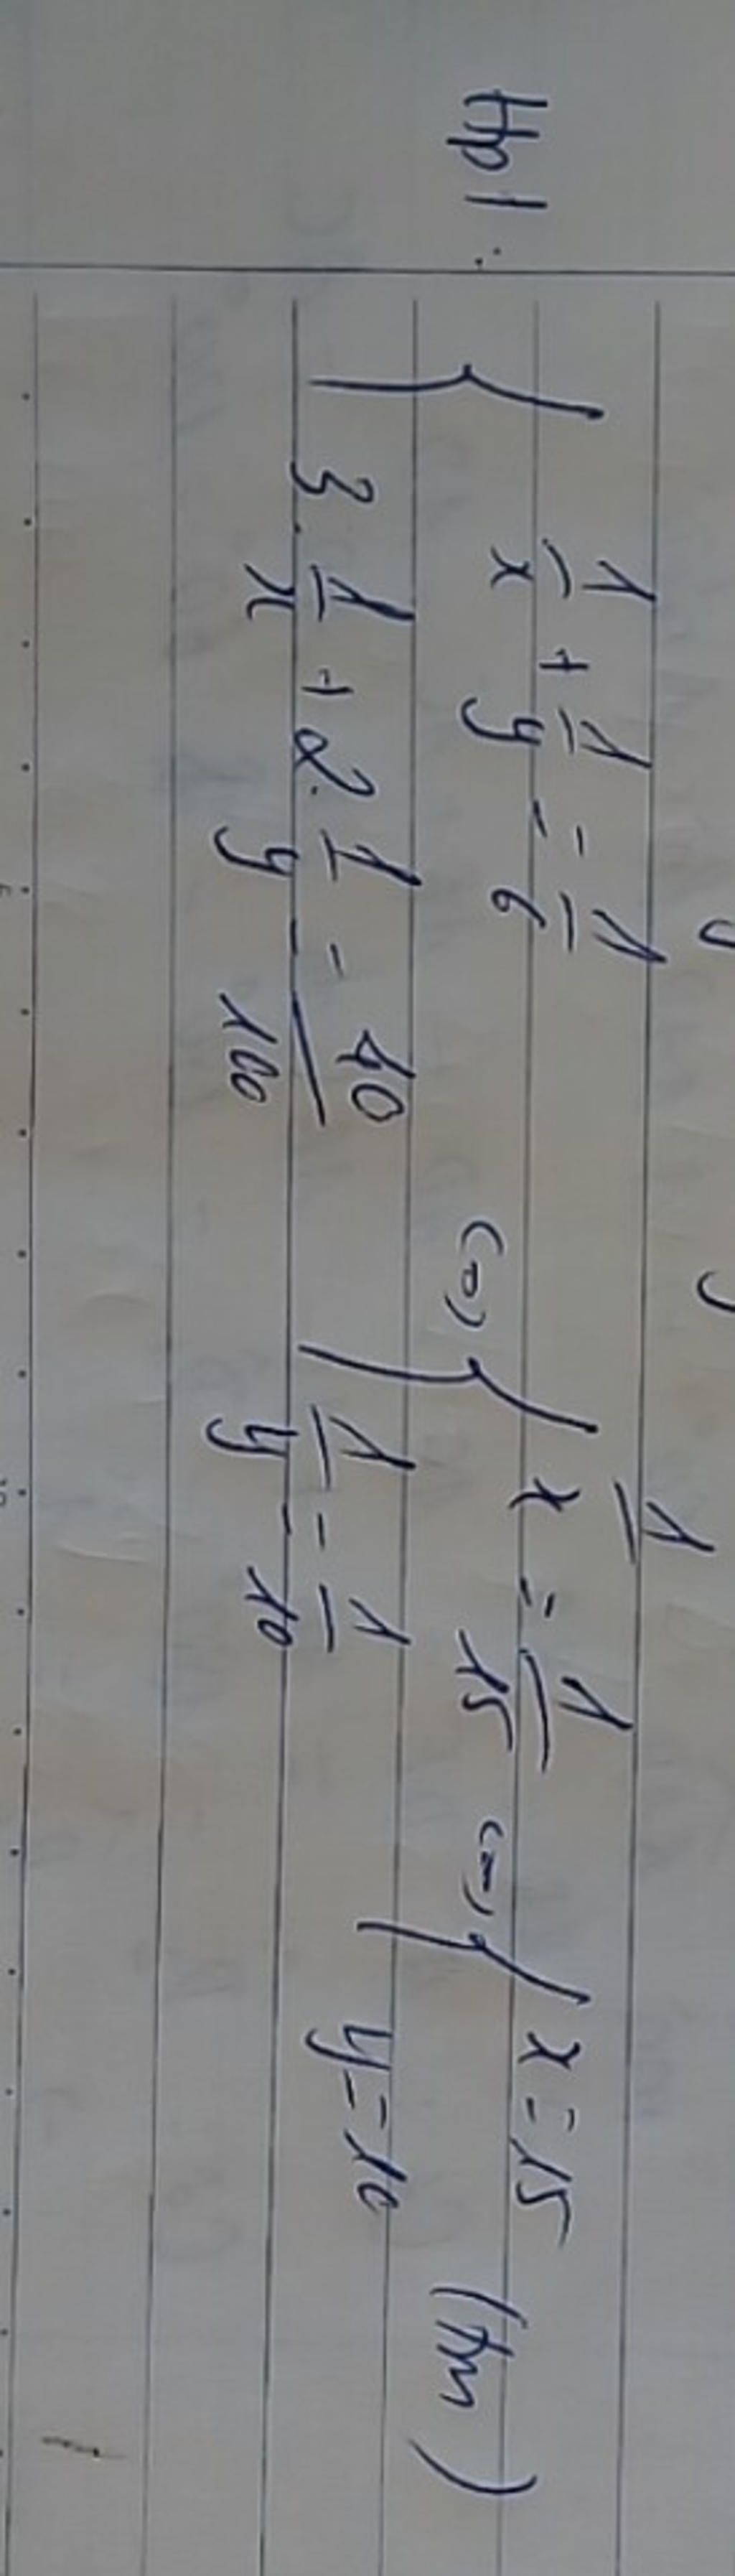 Hpt : { 1/x + 1/y = 1/6
3 . 1/x + 2 . 1/y = 40/100
<=> { 1/x = 1/15
1/y = 1/10
<=> { x = 15
y = 10
(tm)